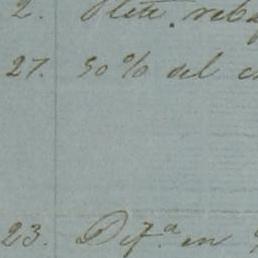 2. Flete reba
27. 50% del c
23. Dif.ª en